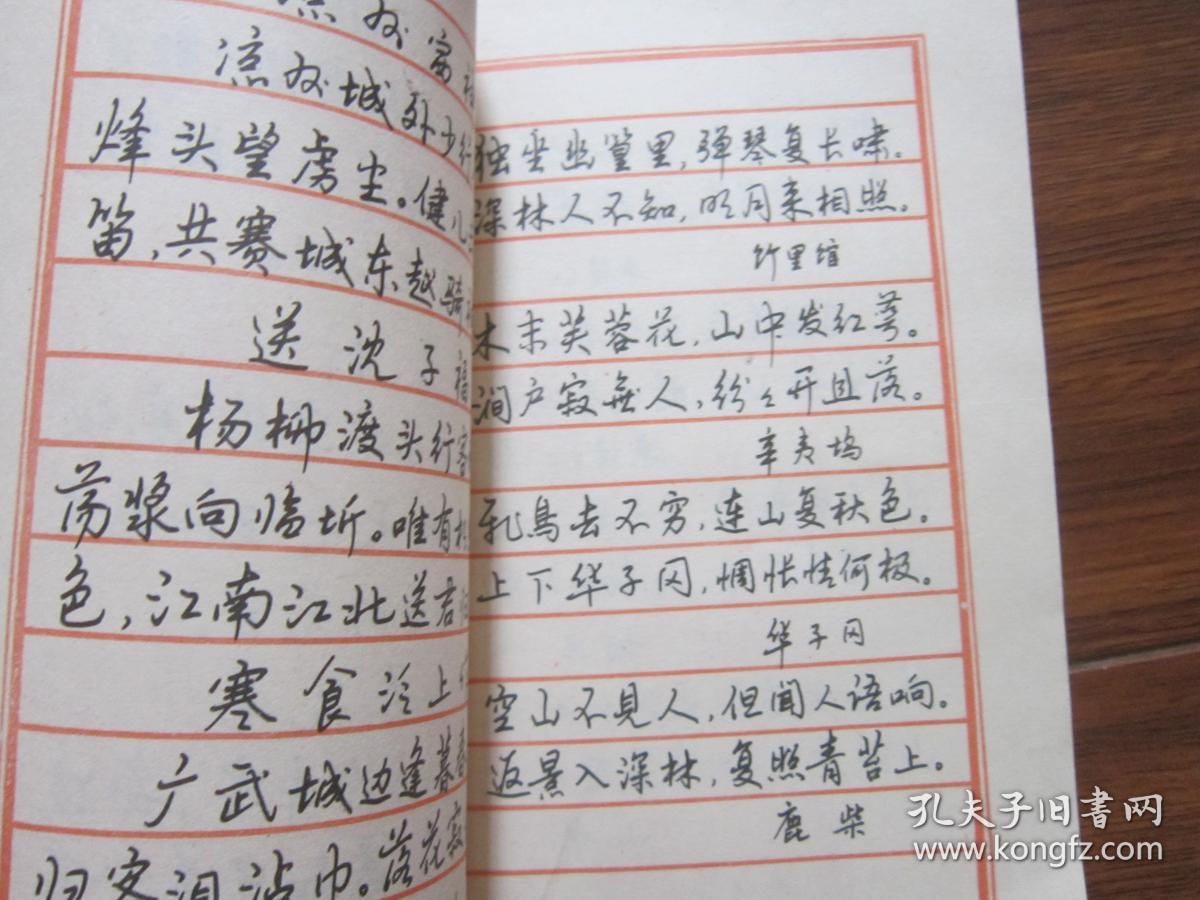 凉州赛
凉州城外少行
烽头望虏尘。健儿
笛,共赛城东越骑
送沈子福
杨柳渡头行客
荡浆向临圻。唯有
色,江南江北送君
寒食汜上
广武城边逢暮春
归客泪沾巾。落花寂
独坐幽篁里,弹琴复长啸。
深林人不知,明月来相照。
竹里馆
木末芙蓉花,山中发红萼。
涧户寂无人,纷々开且落。
辛夷坞
飞鸟去不穷,连山复秋色。
上下华子冈,惆怅情何极。
华子冈
空山不見人,但闻人语响。
返景入深林,复照青苔上。
鹿柴
孔夫子旧书网
www.kongfz.com